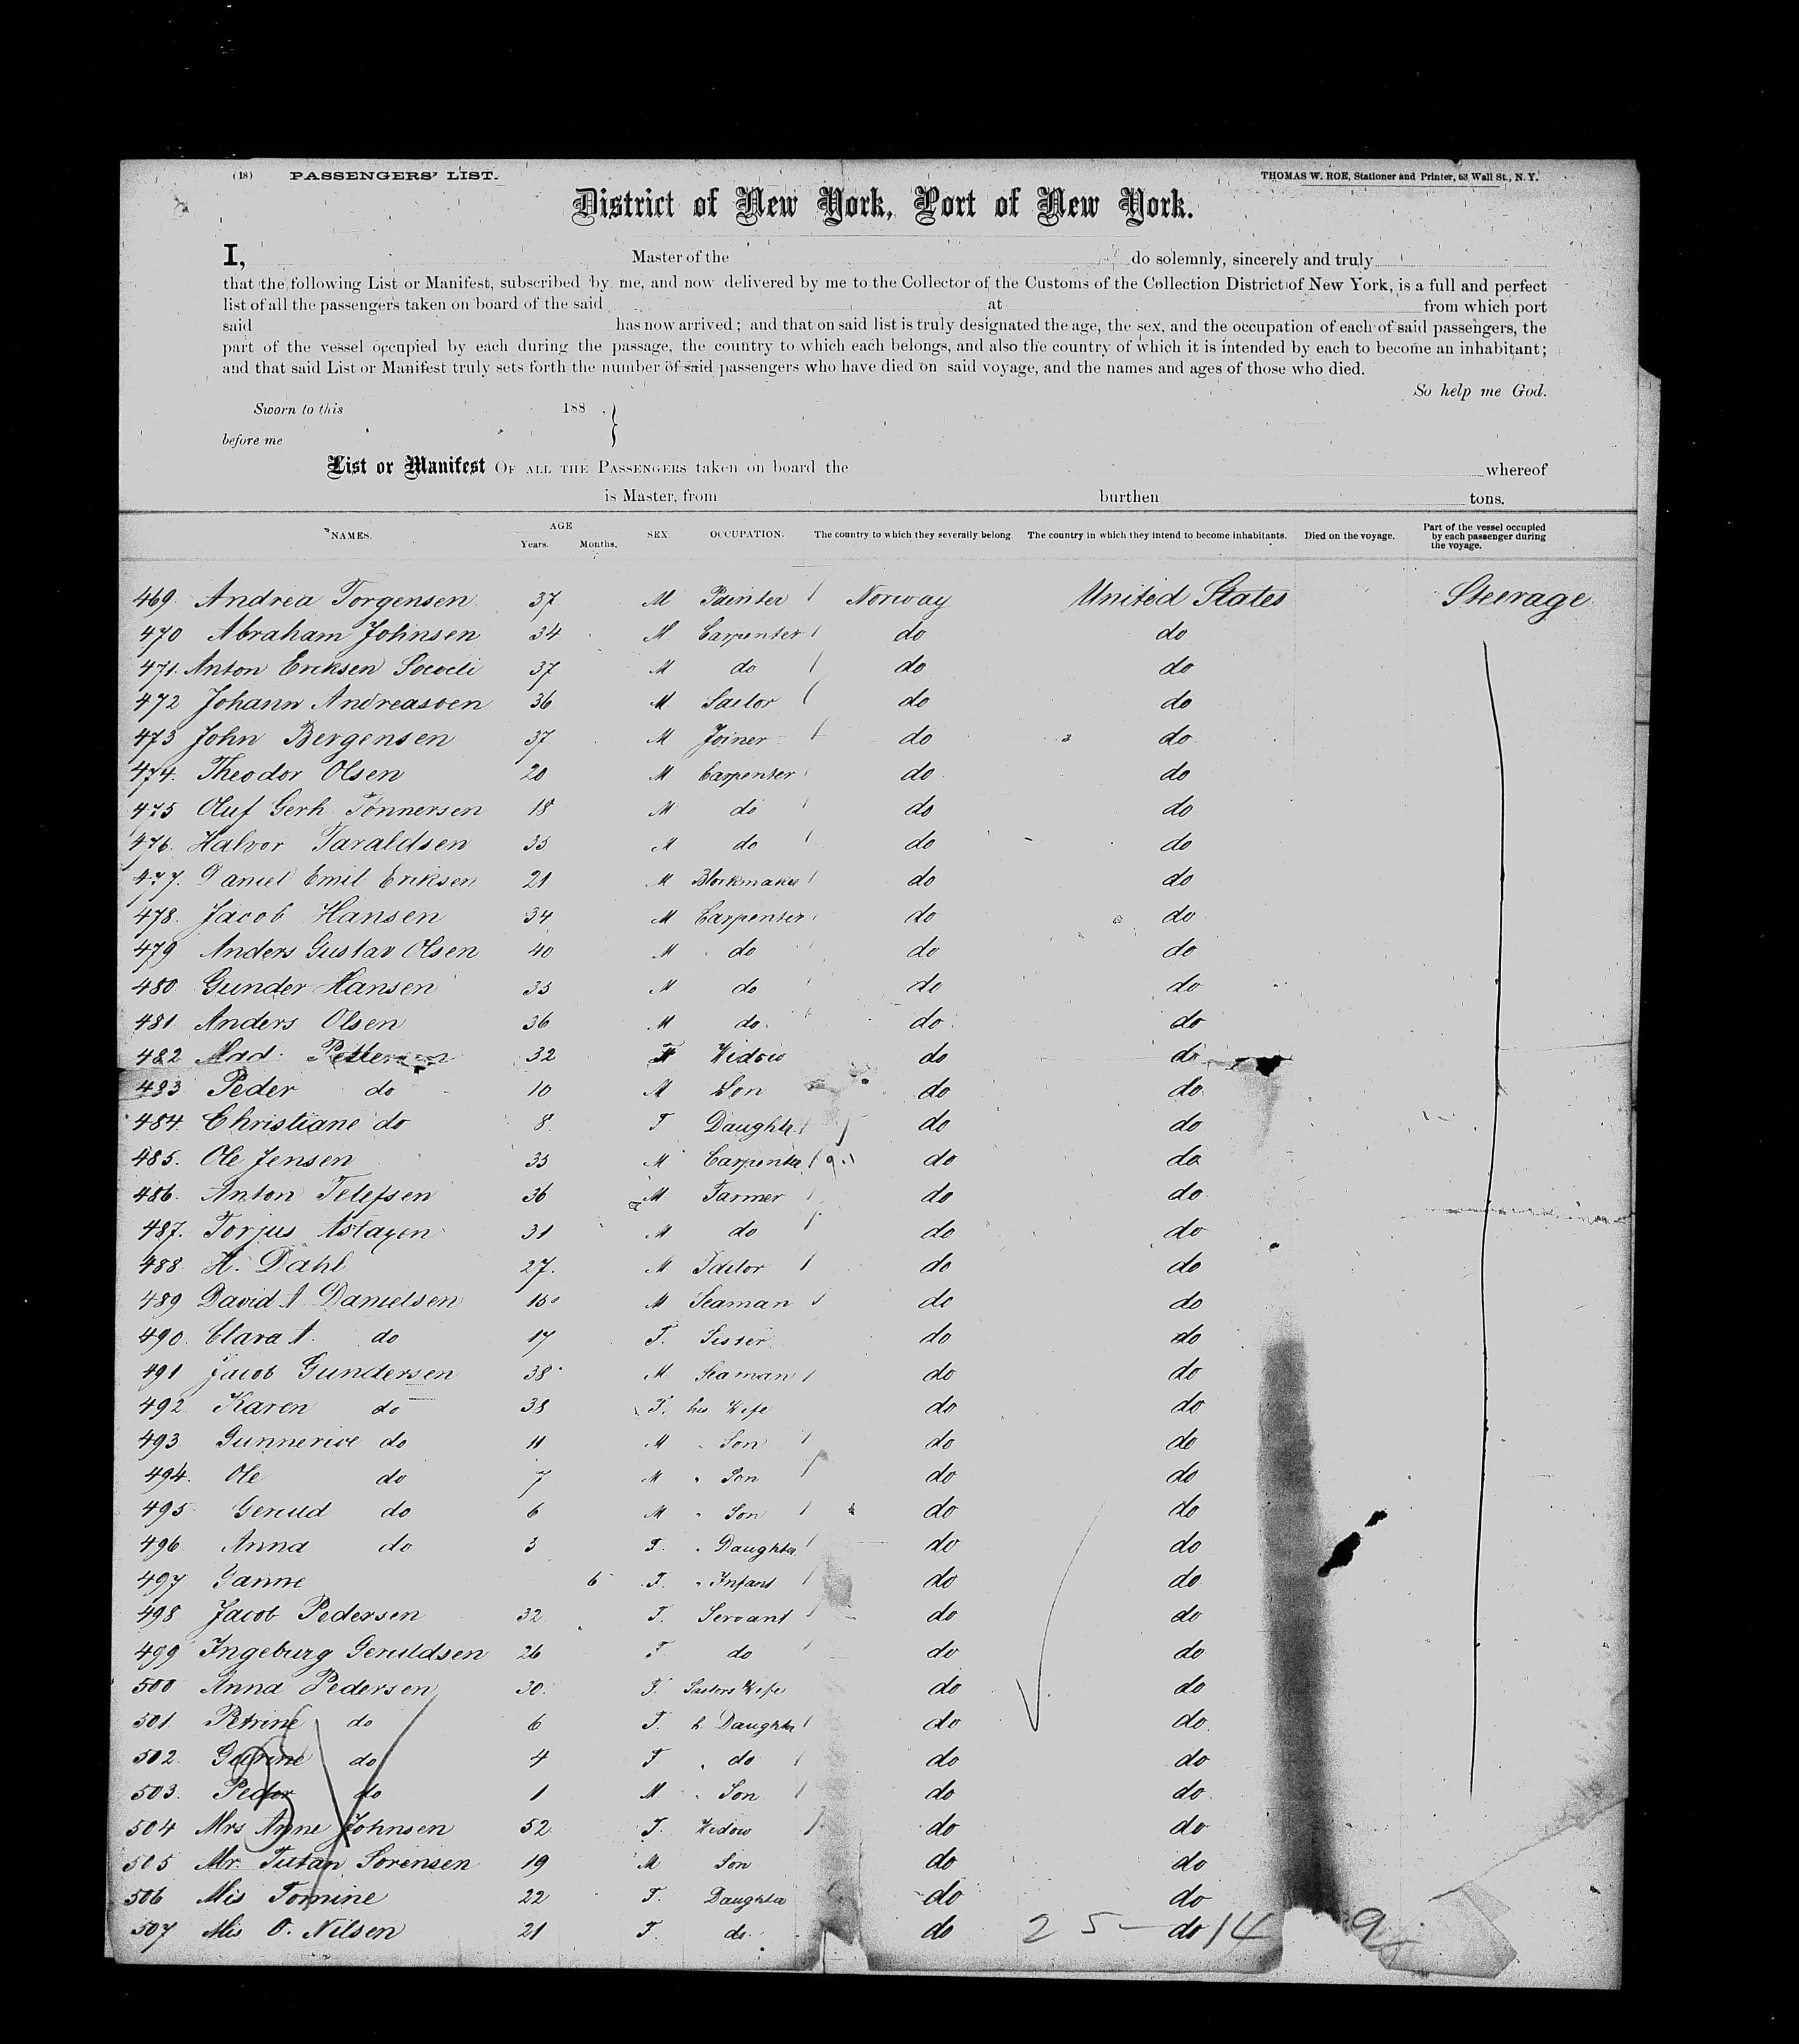 (18) PASSENGERS' LIST. THOMAS W. ROE, Stationer and Printer, 63 Wall St., N.Y.
District of New York, Port of New York.
I, Master of the do solemnly, sincerely and truly
that the following List or Manifest, subscribed by me, and now delivered by me to the Collector of the Customs of the Collection District of New York, is a full and perfect
list of all the passengers taken on board of the said at from which port
said has now arrived; and that on said list is truly designated the age, the sex, and the occupation of each of said passengers, the
part of the vessel occupied by each during the passage, the country to which each belongs, and also the country of which it is intended by each to become an inhabitant;
and that said List or Manifest truly sets forth the number of said passengers who have died on said voyage, and the names and ages of those who died.
So help me God.
Sworn to this 188
before me
List or Manifest OF ALL THE PASSENGERS taken on board the whereof
is Master, from burthen tons.
NAMES. AGE Years. Months. SEX OCCUPATION. The country to which they severally belong. The country in which they intend to become inhabitants. Died on the voyage. Part of the vessel occupied by each passenger during the voyage.
469 Andrea Torgensen 37 M Painter Norway United States Steerage
470 Abraham Johnsen 34 M Carpenter do do
471. Anton Eriksen 37 M do do do
472 Johann Andreassen 36 M Sailor do do
473 John Bergensen 37 M Joiner do do
474. Theodor Olsen 20 M Carpenter do do
475 Oluf Gerh Tonnersen 18 M do do do
476. Halvor Taraldsen 35 M do do do
477. Daniel Emil Eriksen 21 M Blockmaker do do
478. Jacob Hansen 34 M Carpenter do do
479 Anders Gustav Olsen 40 M do do do
480 Gunder Hansen 35 M do do do
481 Anders Olsen 36 M do do do
482 Mad. Pettersen 32 F Widow do do
483 Peder do 10 M Son do do
484 Christiane do 8 F Daughter do do
485. Ole Jensen 35 M Carpenter do do
486. Anton Telefsen 36 M Farmer do do
487. Torjus 31 M do do do
488 H. Dahl 27. M Tailor do do
489 David A Danielsen 15 M Seaman do do
490. Clara A. do 17 F. Sister do do
491 Jacob Gundersen 38 M Seaman do do
492 Karen do 38 F. his Wife do do
493 do 11 M " Son do do
494. Ole do 7 M " Son do do
495 do 6 M " Son do do
496. Anna do 3 F. " Daughter do do
497 6 F. " Infant do do
498 Jacob Pedersen 32 F. Servant do do
499 Ingeburg Geruldsen 26 F do do do
500 Anna Pedersen 30. F. Sailors Wife do do
501. Petrine do 6 F. h. Daughter do do
502. do 4 F " do do do
503. Peder do 1 M " Son do do
504 Mrs Anne Johnsen 52 F. Widow do do
505 Mr. Sorensen 19 M Son do do
506 Mis Tomine 22 F. Daughter do do
507 Mis O. Nilsen 21 F. do do 25 — do 14 9